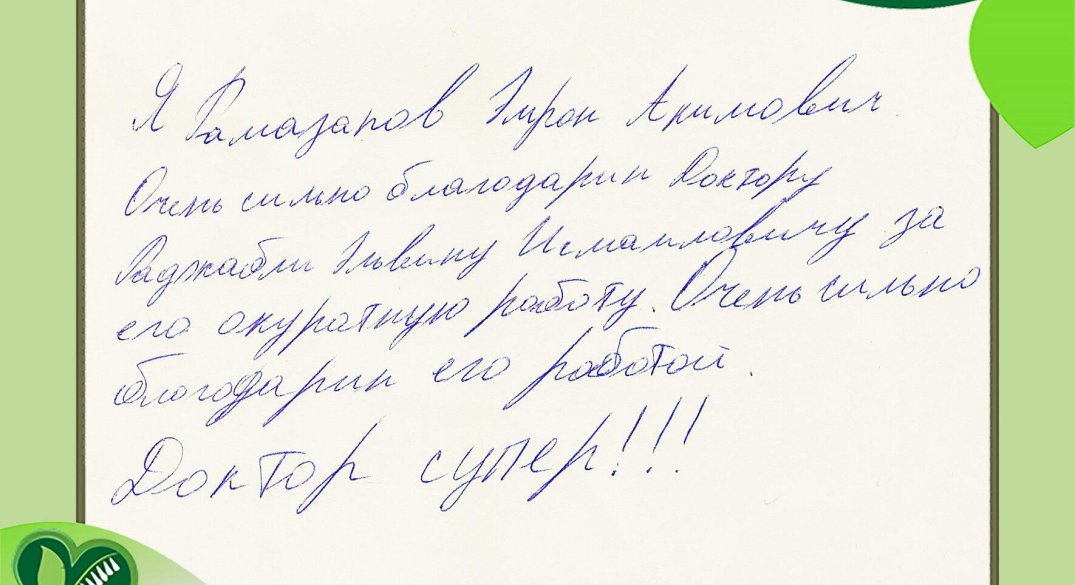 Я Рамазанов Эмрон Акимович
Очень сильно благодарин Доктору
Раджабли Эльвину Исмаиловичу за
его окуратную работу. Очень сильно
благодарин его работой.
Доктор супер!!!